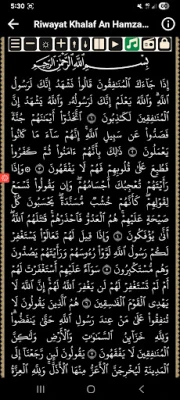 5:30
Riwayat Khalaf An Hamza...
بِسْمِ اللَّهِ الرَّحْمَٰنِ الرَّحِيمِ
إِذَا جَآءَكَ الْمُنَٰفِقُونَ قَالُوا نَشْهَدُ إِنَّكَ لَرَسُولُ
اللَّهِ وَاللَّهُ يَعْلَمُ إِنَّكَ لَرَسُولُهُ وَاللَّهُ يَشْهَدُ إِنَّ
الْمُنَٰفِقِينَ لَكَٰذِبُونَ ١ اتَّخَذُوا أَيْمَٰنَهُمْ جُنَّةً
فَصَدُّوا عَن سَبِيلِ اللَّهِ إِنَّهُمْ سَآءَ مَا كَانُوا
يَعْمَلُونَ ٢ ذَٰلِكَ بِأَنَّهُمْ ءَامَنُوا ثُمَّ كَفَرُوا
فَطُبِعَ عَلَىٰ قُلُوبِهِمْ فَهُمْ لَا يَفْقَهُونَ ٣ وَإِذَا
رَأَيْتَهُمْ تُعْجِبُكَ أَجْسَامُهُمْ وَإِن يَقُولُوا تَسْمَعْ
لِقَوْلِهِمْ كَأَنَّهُمْ خُشُبٌ مُّسَنَّدَةٌ يَحْسَبُونَ كُلَّ
صَيْحَةٍ عَلَيْهُمْ هُمُ الْعَدُوُّ فَاحْذَرْهُمْ قَٰتَلَهُمُ اللَّهُ
أَنَّىٰ يُؤْفَكُونَ ٤ وَإِذَا قِيلَ لَهُمْ تَعَالَوْا يَسْتَغْفِرْ
لَكُمْ رَسُولُ اللَّهِ لَوَّوْا رُءُوسَهُمْ وَرَأَيْتَهُمْ يَصُدُّونَ
وَهُم مُّسْتَكْبِرُونَ ٥ سَوَآءٌ عَلَيْهُمْ أَسْتَغْفَرْتَ لَهُمْ
أَمْ لَمْ تَسْتَغْفِرْ لَهُمْ لَن يَغْفِرَ اللَّهُ لَهُمْ إِنَّ اللَّهَ لَا
يَهْدِي الْقَوْمَ الْفَٰسِقِينَ ٦ هُمُ الَّذِينَ يَقُولُونَ لَا
تُنفِقُوا عَلَىٰ مَنْ عِندَ رَسُولِ اللَّهِ حَتَّىٰ يَنفَضُّوا
وَلِلَّهِ خَزَآئِنُ السَّمَٰوَٰتِ وَالْأَرْضِ وَلَٰكِنَّ
الْمُنَٰفِقِينَ لَا يَفْقَهُونَ ٧ يَقُولُونَ لَئِن رَّجَعْنَآ إِلَى
الْمَدِينَةِ لَيُخْرِجَنَّ الْأَعَزُّ مِنْهَا الْأَذَلَّ وَلِلَّهِ الْعِزَّةُ